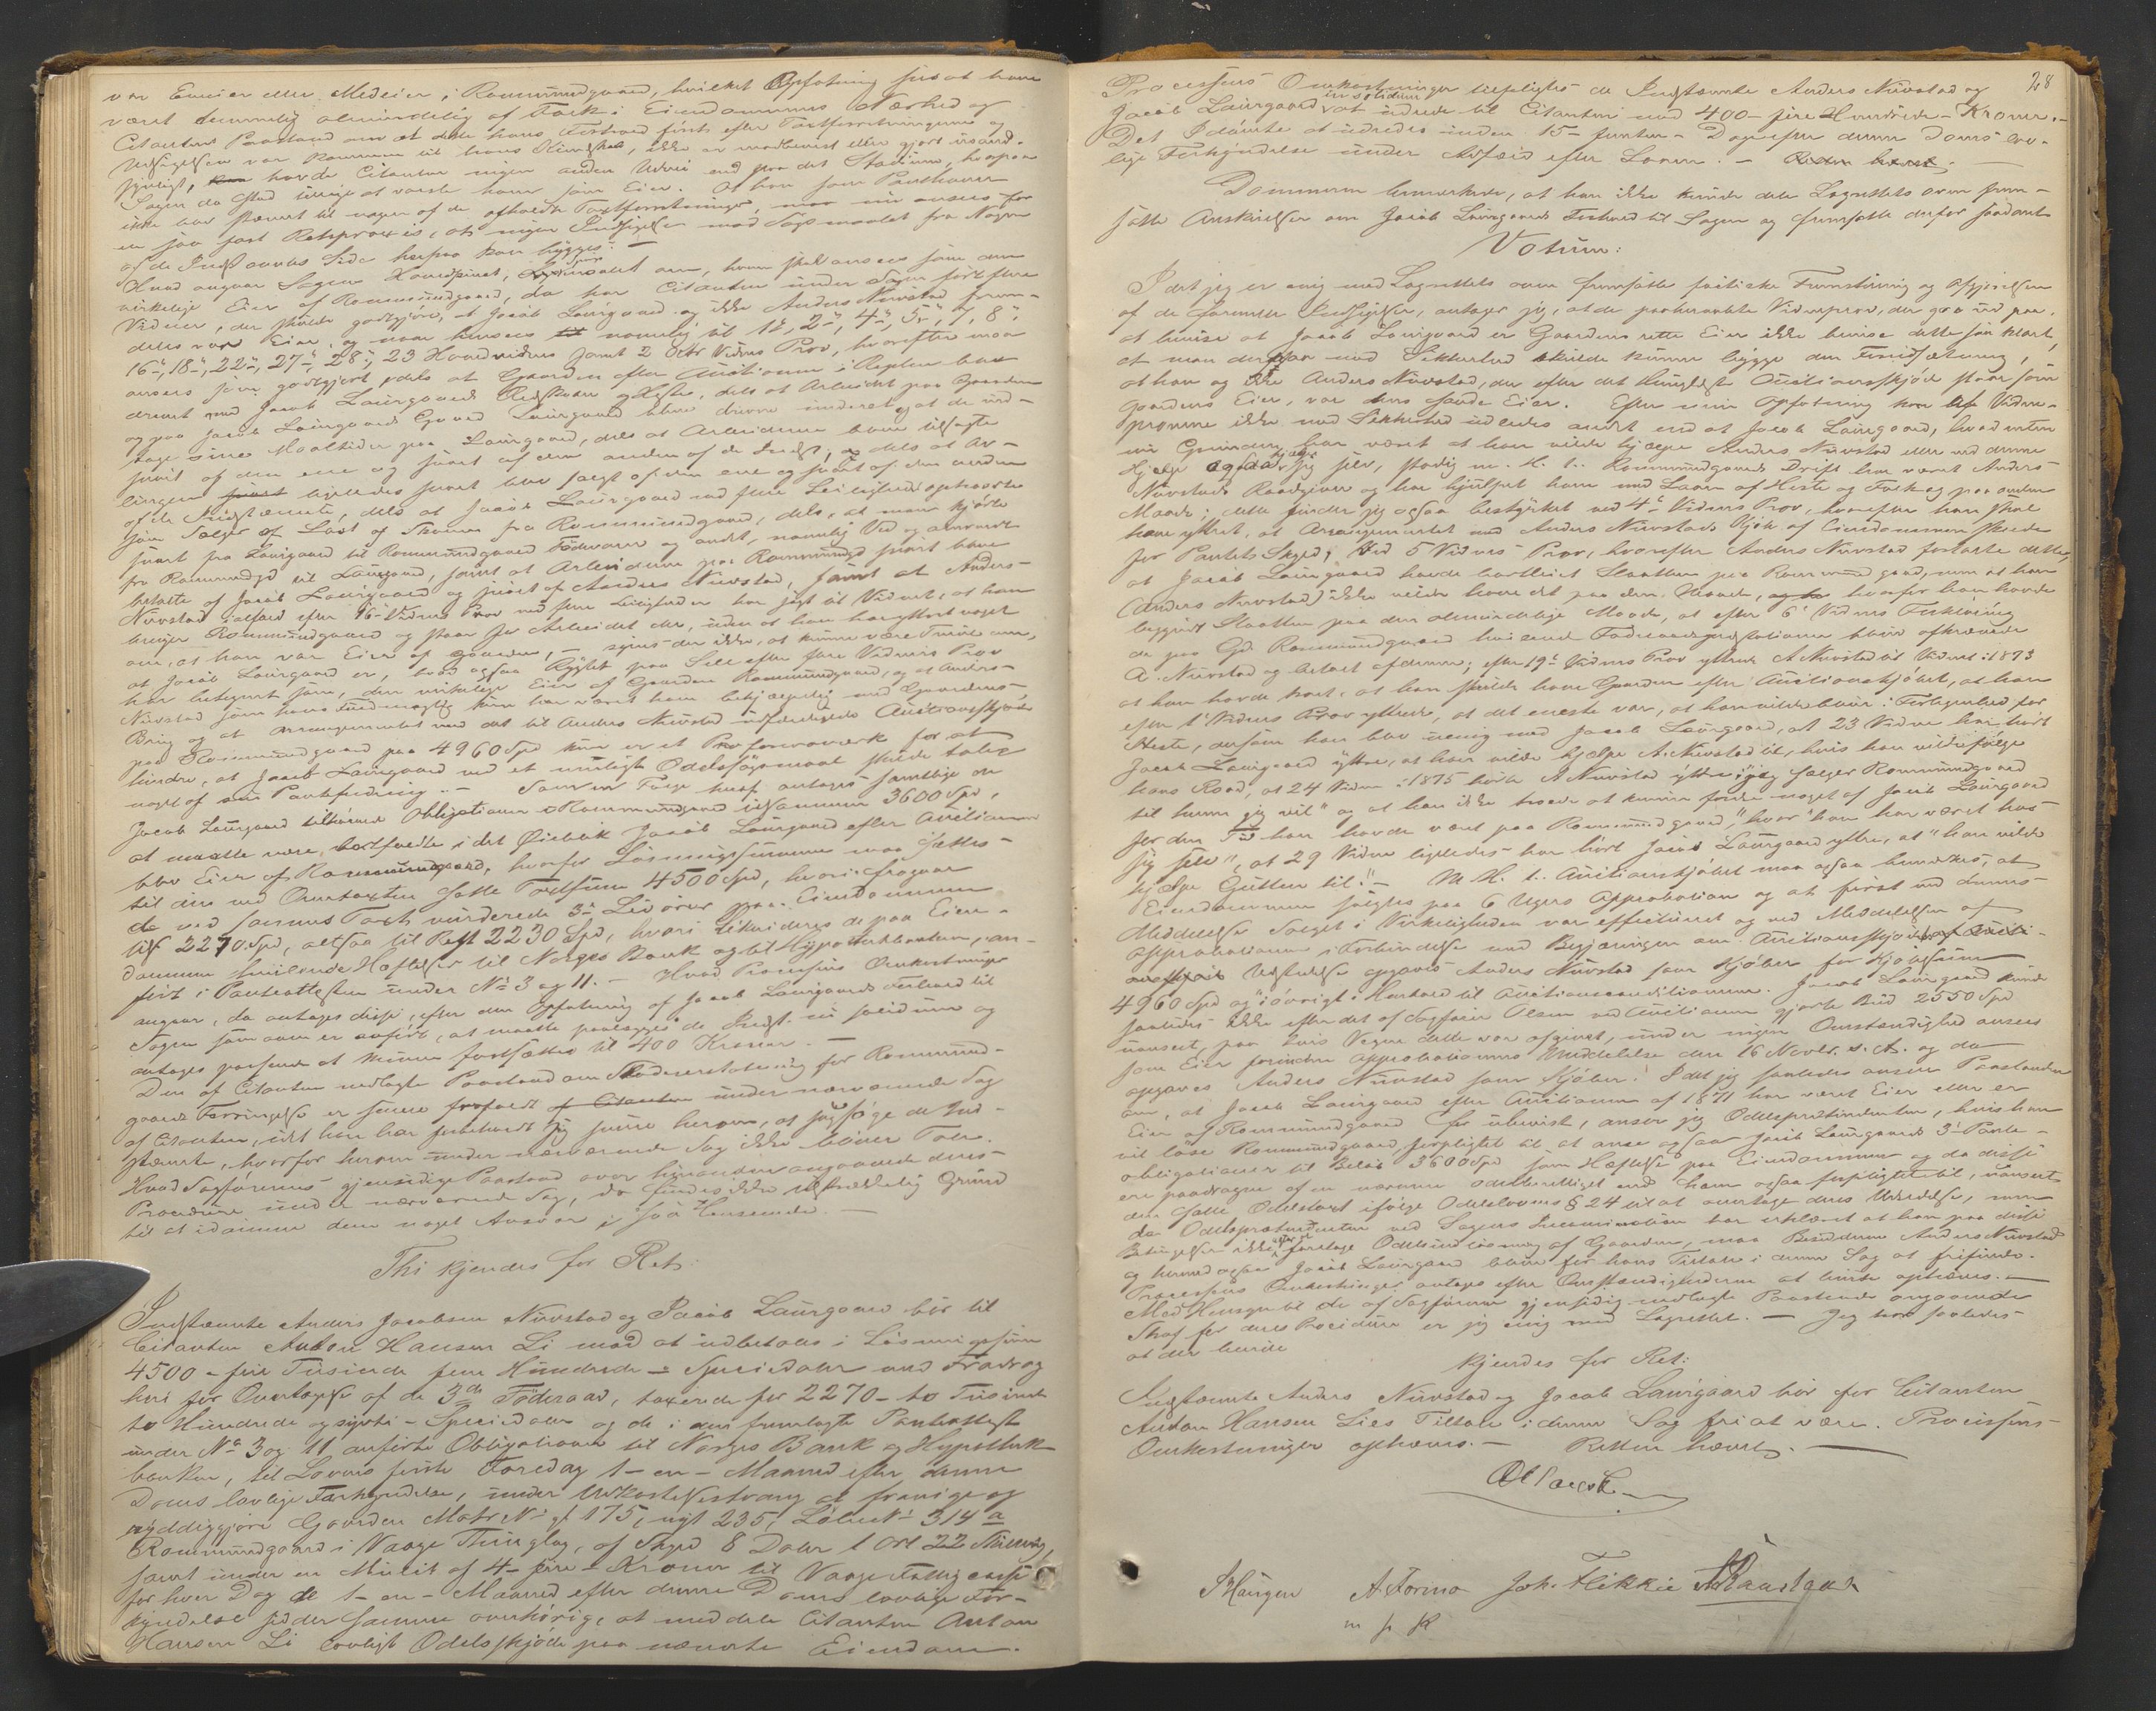 var Eneeier eller Medeier i Rommundgaard, hvilket Opfatning sees at have
været temmelig almindelig af Folk i Eiendommens Nærhed og
Citantens Paastand om at dette hans Forhold først efter Taxtforretningerne og
Udsigelsen var kommen til hans Kundskab, ikke er modbevist eller gjort usand-
synligt, havde Citanten ingen anden Udvei end paa det Stadium, hvorpaa
Sagen da stod at varsle ham som Eier. At han som Panthaver
ikke blev stævnet til nogen af de afholdte Taxtforretninger, maa nu ansees for
en saa fast Retspraxis, at ingen Indsigelse mod Søgsmaalet fra Nogen
af de Indstævntes Side herpaa kan bygges. –
Hvad angaar Sagens Hovedpunct, Spørsmaalet om, hvem skal ansees som den
virkelige Eier af Rommundgaard, da har Citanten under Sagen ført flere
Vidner, der skulde godtgjøre, at Jacob Laurgaard og ikke Anders Nuvstad frem-
deles var Eier, og naar henses til navnlig til 1ste, 2det, 4de, 5te, 7, 8,
16de, 18de, 22de, 27de, 28de, 23 Hovedvidner samt 2 Vidnes Prov, hvorefter maa
ansees som godtgjort, dels at Gaarden efter Auctionen i Reglen blev
drevet med Jacob Laurgaards Redskaber og Heste, dels at Arbeidet paa Gaarden
og paa Jacob Laurgaards Gaard Laurgaard blev drevet under et, og at de ind-
tage sine Maaltider paa Laurgaard, dels at Arbeiderne blev tilsagte
snart af den ene og snart af den anden af de Indst., og dels at Av-
lingen ligeledes snart blev solgt af den ene og snart af den anden
af de Indstævnte, dels at Jacob Laurgaard ved flere Leiligheder optraadte
som Sælger af Last og Skoven fra Rommundgaard, dels, at man kjørte
snart fra Laurgaard til Rommundgaard Fødevarer og andet, navnlig Ved og omvendt
fra Rommundgd til Laurgaard, samt at Arbeiderne paa Rommundgd snart blev
betalte af Jacob Laurgaard og snart af Anders Nuvstad, samt at Anders
Nuvstad ialfald efter 16de Vidnes Prov ved flere Leiligheder har sagt til Vidnet, at han
bruger Rommundgaard og staar for Arbeidet der, uden at han har ytret noget
om, at han var Eier af Gaarden, – synes der ikke, at kunne være Tvivl om,
at Jacob Laurgaard er, hvad ogsaa Rygtet paa Sell efter flere Vidners Prov
har betegnet som, den virkelige Eier af Gaarden Rommundgaard, og at Anders
Nuvstad som hans Fuldmægtig kun har været ham behjælpelig med Gaardens
Brug og at Arrangementet med det til Anders Nuvstad udfærdigede Auctionsskjøde
paa Rommundgaard paa 4960 Spd kun er et Proformaværk for at
hindre, at Jacob Laurgaard ved et muligt Odelssøgsmaal skulde tabe
noget af sin Pantefordring. – Som en Følge heraf antages samtlige de
Jacob Laurgaard tilhørende Obligationer i Rommundgaard tilsammen 3600 Spd,
at maatte være bortfaldte i det Øieblik Jacob Laurgaard efter Auctionen
blev Eier af Rommundgaard, hvorfor Løsningssummen maa fastsættes
til den ved Overtaxten satte Taxtsum 4500 Spd, hvori fragaar
de ved samme Taxt vurderede 3de Livører paa Eiendommen
tils 2270 Spd, altsaa til Rest 2230 Spd, hvori likvideres de paa Eien-
dommen hvilende Hæftelser til Norges Bank og til Hypothekbanken, an-
ført i Panteattesten under No 3 og 11. – Hvad Processens Omkostninger
angaar, da antages disse, efter den Opfatning af Jacob Laurgaards Forhold til
Sagen som oven er anført, at maatte paalægges de Indst. in solidum og
antages passende at kunne fastsættes til 400 Kroner. –
Den af Citanten nedlagte Paastand om Skadeserstatning for Rommund-
gaards Forringelse er senere frafaldt under nærværende Sag
af Citanten, idet han har forbeholdt sig senere herom, at søge de Ind-
stævnte, hvorfor herom under nærværende Sag ikke bliver Tale.
Hvad Sagførernes gjensidige Paastand over hinanden angaaende deres
Procedure under nærværende Sag, da findes ikke tilstrækkelig Grund
til at idømme dem noget Ansvar i saa Henseende. –
Thi kjendes for Ret:
Indstævnte Anders Jacobsen Nuvstad og Jacob Laurgaard bør til
Citanten Anton Hansen Li mod at udbetales i Løsningssum
4500 – fire Tusinde fem Hundrede – Speciedaler med Fradrag
heri for Overtagelse af de 3de Føderaad, taxerede for 2270 – to Tusinde
to Hundrede og sytti – Speciedaler og de i den fremlagte Panteattest
under No 3 og 11 anførte Obligationer til Norges Bank og Hypothek-
banken, til Lovens første Faredag 1 – en – Maaned efter denne
Doms lovlige Forkyndelse, under Udkastelsestvang at fravige og
ryddiggjøre Gaarden Matr No gl 175, nyt 235, Løbe No 314 a
Rommundgaard i Vaage Thinglag, af Skyld 8 Daler 1 Ort 22 Skilling,
samt under en Mulct af 4 – fire – Kroner til Vaage Fattigcasse
for hver Dag de 1 – en – Maaned efter denne Doms lovlige For-
kyndelse sidder samme overhørig, at meddele Citanten Anton
Hansen Li lovligt Odelsskjøde paa nævnte Eiendom.
28
Processens Omkostninger tilpligtes de Indstævnte Anders Nuvstad og
Jacob Laurgaard in solidum at udrede til Citanten med 400 – fire Hundrede – Kroner. –
Det Idømte at udredes inden 15 – femten – Dage efter denne Doms lov-
lige Forkyndelse under Adfærd efter Loven. – Retten hævet. –
Dommeren bemærkede, at han ikke kunde dele Lagrettets oven frem-
satte Anskuelser om Jacob Laurgaards Forhold til Sagen og fremsatte derfor saadant
Votum:
Idet jeg er enig med Lagrettets oven fremsatte factiske Fremstilling og Afgjørelsen
af de formelle Indsigelser, antager jeg, at de paaberaabte Vidneprov, der gaa ud paa,
at bevise at Jacob Laurgaard er Gaardens rette Eier ikke bevise dette saa klart,
at man derpaa med Sikkerhed skulde kunne bygge den Forudsætning,
at han og ikke Anders Nuvstad, der efter det thinglæste Auctionsskjøde staar som
Gaardens Eier, var dens sande Eier. Efter min Opfatning kan af Vidne-
provene ikke med Sikkerhed udledes andet end at Jacob Laurgaard, hvad enten
nu Grunden har været at han vilde hjælpe Anders Nuvstad eller ved denne
Hjælp ogsaa hjælpe sig selv, stadig m. H. t. Rommundgaards Drift har været Anders
Nuvstads Raadgiver og har hjulpet ham med Laan af Heste og Folk og paa anden
Maade; dette finder jeg ogsaa bestyrket ved 4de Vidnes Prov, hvorefter han skal
have yttret, at Arrangementet med Anders Nuvstads Kjøb af Eiendommen skede
for Pantets Skyld, ved 5 Vidnes Prov, hvorefter Anders Nuvstad fortalte dette,
at Jacob Laurgaard havde bortleiet Slaatten paa Rommundgaard, men at han
(Anders Nuvstad) ikke vilde have det paa den Maade, hvorfor han havde
begyndt Slaatten paa den almindelige Maade, at efter 6te Vidnes Forklaring
de paa Gd. Rommundgaard hvilende Føderaadspræstationer blev afkrævede
A. Nuvstad og betalt af denne; efter 19de Vidnes Prov yttrede A Nuvstad til Vidnet i 1873
at han havde hørt, at han skulde have Gaarden efter Auctionsskjødet, at han
efter 1ste Vidnes Prov yttrede, at det eneste var, at han vilde blive i Forlegenhed for
Heste, dersom han blev uenig med Jacob Laurgaard, at 23 Vidne har hørt
Jacob Laurgaard yttre, at han vilde hjælpe A. Nuvstad til, hvis han vilde følge
hans Raad, at 24 Vidne i 1875 hørte A Nuvstad yttre: "jeg sælger Rommundgaard
til hvem jeg vil" og at han ikke troede at kunne fordre noget af Jacob Laurgaard
for den Tid han havde vært paa Rommundgaard, "hvor han har været hos
sig selv", at 29 Vidne ligeledes har hørt Jacob Laurgaard yttre, at "han vilde
hjælpe Gutten til." – M. H. t. Auctionsskjødet maa ogsaa bemærkes, at
Eiendommen solgtes paa 6 Ugers Approbation og at først ved dennes
Meddelelse Salget i Virkeligheden var effectueret og ved Meddelelsen af
Approbationen i Forbindelse med Begjæringen om Auctionsskjødets
Udstedelse opgaves Anders Nuvstad som Kjøber for Kjøbesum
4960 Spd og iøvrigt i Henhold til Auctionsconditionerne. Jacob Laurgaard kunde
saaledes ikke efter det af Sagfører Olsen ved Auctionen gjorte Bud 2550 Spd
uanseet, paa hvis Vegne dette var afgivet, under nogen Omstændighed ansees
som Eier forinden Approbationens Meddelelse den 16 Novbr. s. A. og da
opgaves Anders Nuvstad som Kjøber. Idet jeg saaledes anser Paastanden
om, at Jacob Laurgaard efter Auctionen af 1871 har været Eier eller er
Eier af Rommundgaard for ubevist, anser jeg Odelsprætendenten, hvis han
vil løse Rommundgaard, forpligtet til at anse ogsaa Jacob Laurgaards 3de Pante-
obligationer til Beløb 3600 Spd som Hæftelse paa Eiendommen og da disse
ere paadragne af en nærmere odelsberettiget end ham ogsaa forpligtet til, uanseet
den satte Odelstaxt ifølge Odelslovens § 24 til at overtage deres Udredelse, men
da Odelsprætendenten ved Sagens Incamination har erklæret at han paa disse
Betingelser ikke agter at foretage Odelsindløsning af Gaarden, maa Besidderen Anders Nuvstad
og hermed ogsaa Jacob Laurgaard blive for hans Tiltale i denne Sag at frifinde.
Processens Omkostninger antages efter Omstændighederne at burde ophæves. –
Med Hensyn til de af Sagførerne gjensidig nedlagte Paastande angaaende
Straf for deres Procedure er jeg enig med Lagrettet. – Jeg tror saaledes
at der burde
kjendes for Ret:
Indstævnte Anders Nuvstad og Jacob Laurgaard bør for Citanten
Anton Hansen Lies Tiltale i denne Sag fri at være. Processens
Omkostninger ophæves. – Retten hævet. –
SHaugen A. Formo Joh. Flikkie
m p P